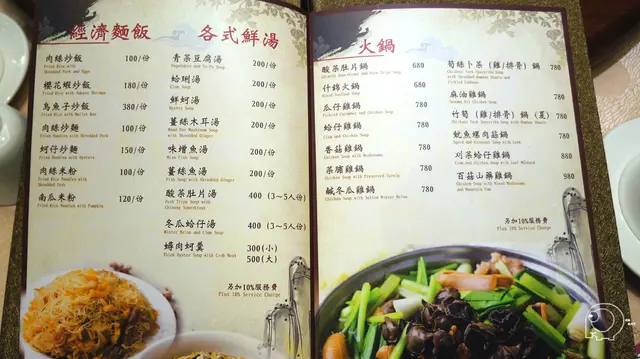 經濟麵飯
肉絲炒飯 100/份
Fried Rice with
Shredded Pork and Eggs
櫻花蝦炒飯 180/份
Fried Rice with Sakura Shrimps
烏魚子炒飯 380/份
Fried Rice with Mullet Roe
肉絲炒麵 100/份
Fried Noodles with Shredded Pork
蚵仔炒麵 150/份
Fried Noodles with Oysters
肉絲米粉 100/份
Fried Rice Noodles with
Shredded Pork
南瓜米粉 120/份
Fried Rice Noodles with Pumpkin
各式鮮湯
青菜豆腐湯 200/份
Vegetable and Tofu Soup
蛤蜊湯 200/份
Clam Soup
鮮蚵湯 200/份
Oyster Soup
薑絲木耳湯 200/份
Wood Ear Mushroom Soup
with Shredded Ginger
味噌魚湯 200/份
Miso Fish Soup
薑絲魚湯 200/份
Fish Soup with Shredded Ginger
酸菜肚片湯 400 (3~5人份)
Pork Tripe Soup with
Chinese Sauerkraut
冬瓜蛤仔湯 400 (3~5人份)
Winter Melon and Clam Soup
蟳肉蚵羹 300(小)
Thick Oyster Soup with Crab Meat 500(大)
另加10%服務費
Plus 10% Service Charge
火鍋
酸菜肚片鍋 680
什錦火鍋 680
Mixed Seafood Soup
瓜仔雞鍋 780
Pickled Cucumber and Chicken Soup
蛤仔雞鍋 780
Clam and Chicken Soup
香菇雞鍋 780
Chicken Soup with Mushrooms
菜脯雞鍋 780
Chicken Soup with Preserved Turnip
鹹冬瓜雞鍋 780
Chicken Soup with Salted Winter Melon
筍絲卜菜(雞/排骨)鍋 780
麻油雞鍋 780
Sesame Oil Chicken Soup
竹筍(雞/排骨)鍋(夏) 780
魷魚螺肉蒜鍋 780
刈菜蛤仔雞鍋 880
百菇山藥雞鍋 980
Chicken Soup with Mixed Mushrooms
and Mountain Yam
另加10%服務費
Plus 10% Service Charge